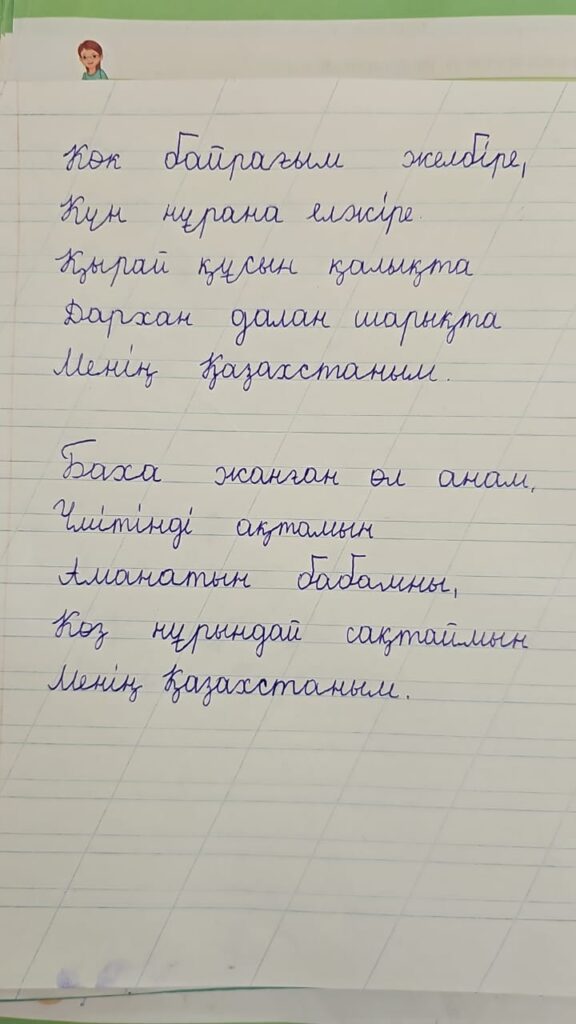 Көк байрағым желбіре,
Күн нұрана елжіре.
Қырай құсын қалықта
Дархан далан шарықта
Менің Қазахстаным.
Баха жанған өл анам,
Үмітінді ақтамын
Аманатын бабамны,
Көз нұрындай сақтаймын
Менің Қазахстаным.